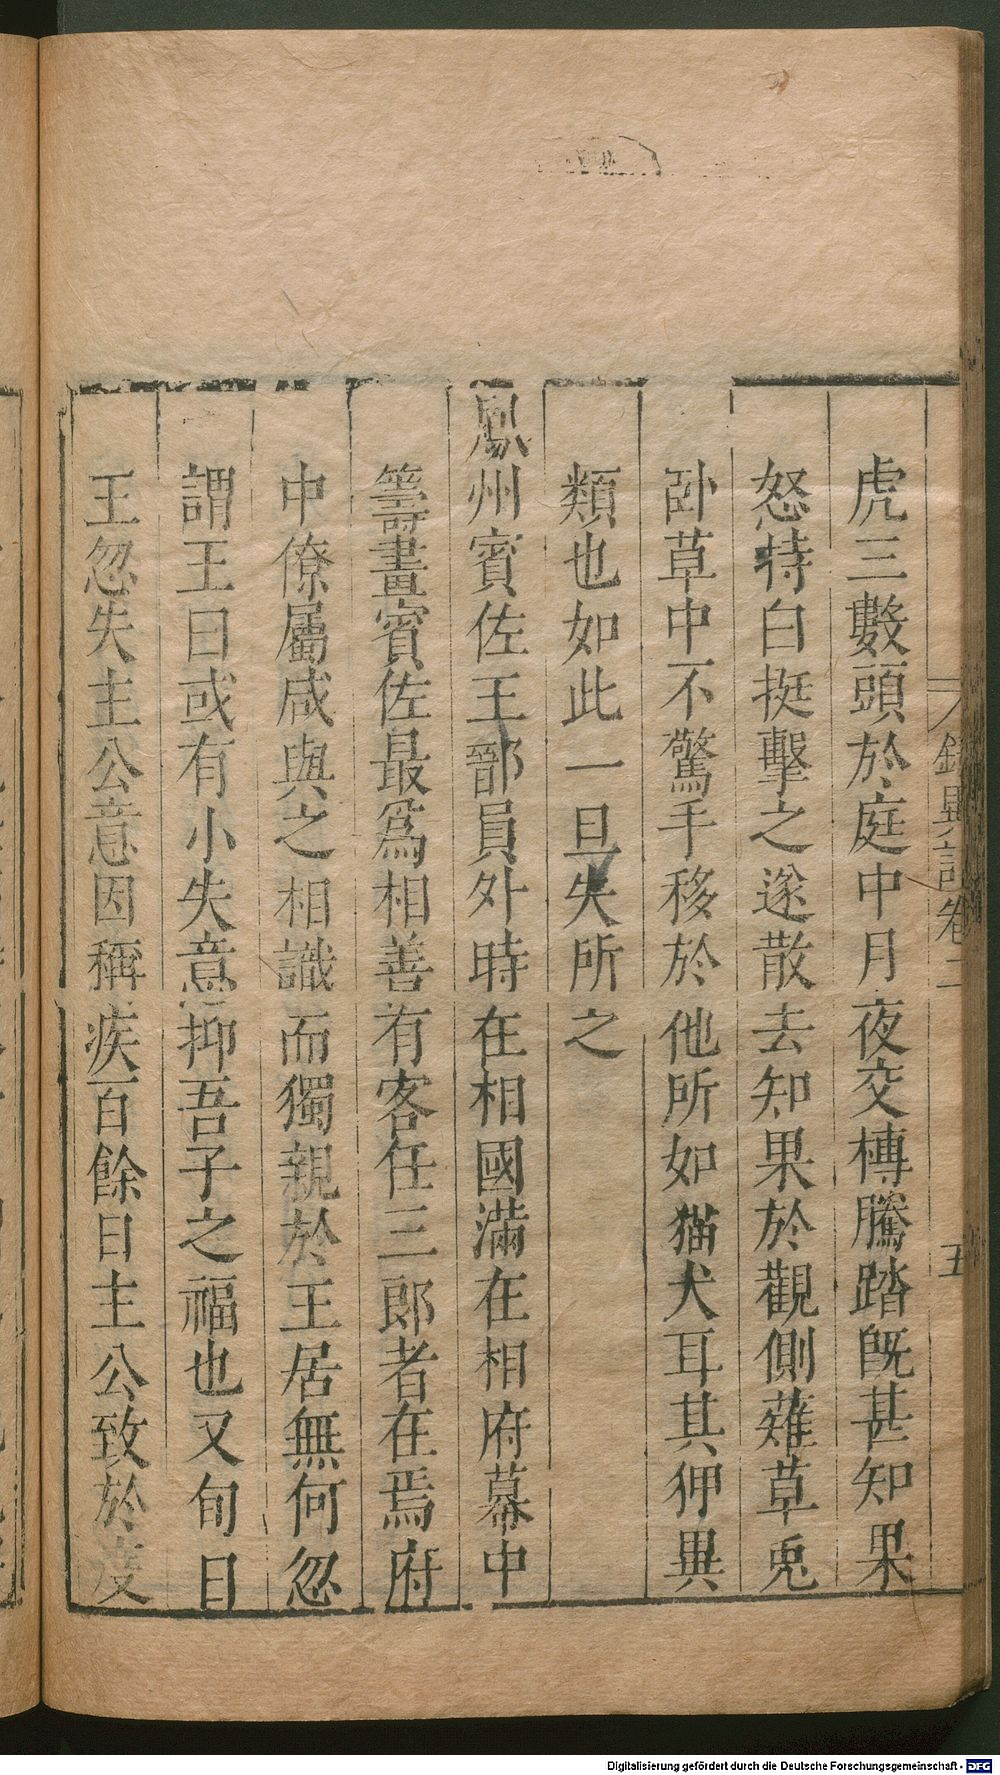 虎三數頭於庭中月夜交摶騰踏旣甚知果
怒持白挺擊之遂散去知果於觀側薙草兎
卧草中不驚手移於他所如猫犬耳其狎異
類也如此一旦失所之
鳳州賓佐王鄑員外時在相國滿在相府幕中
籌畫賓佐最爲相善有客任三郎者在焉府
中僚屬咸與之相識而獨親於王居無何忽
謂王曰或有小失意抑吾子之福也又旬日
王忽失主公意因稱疾百餘日主公致於度
錄異記卷二
五
Digitalisierung gefördert durch die Deutsche Forschungsgemeinschaft - DFG